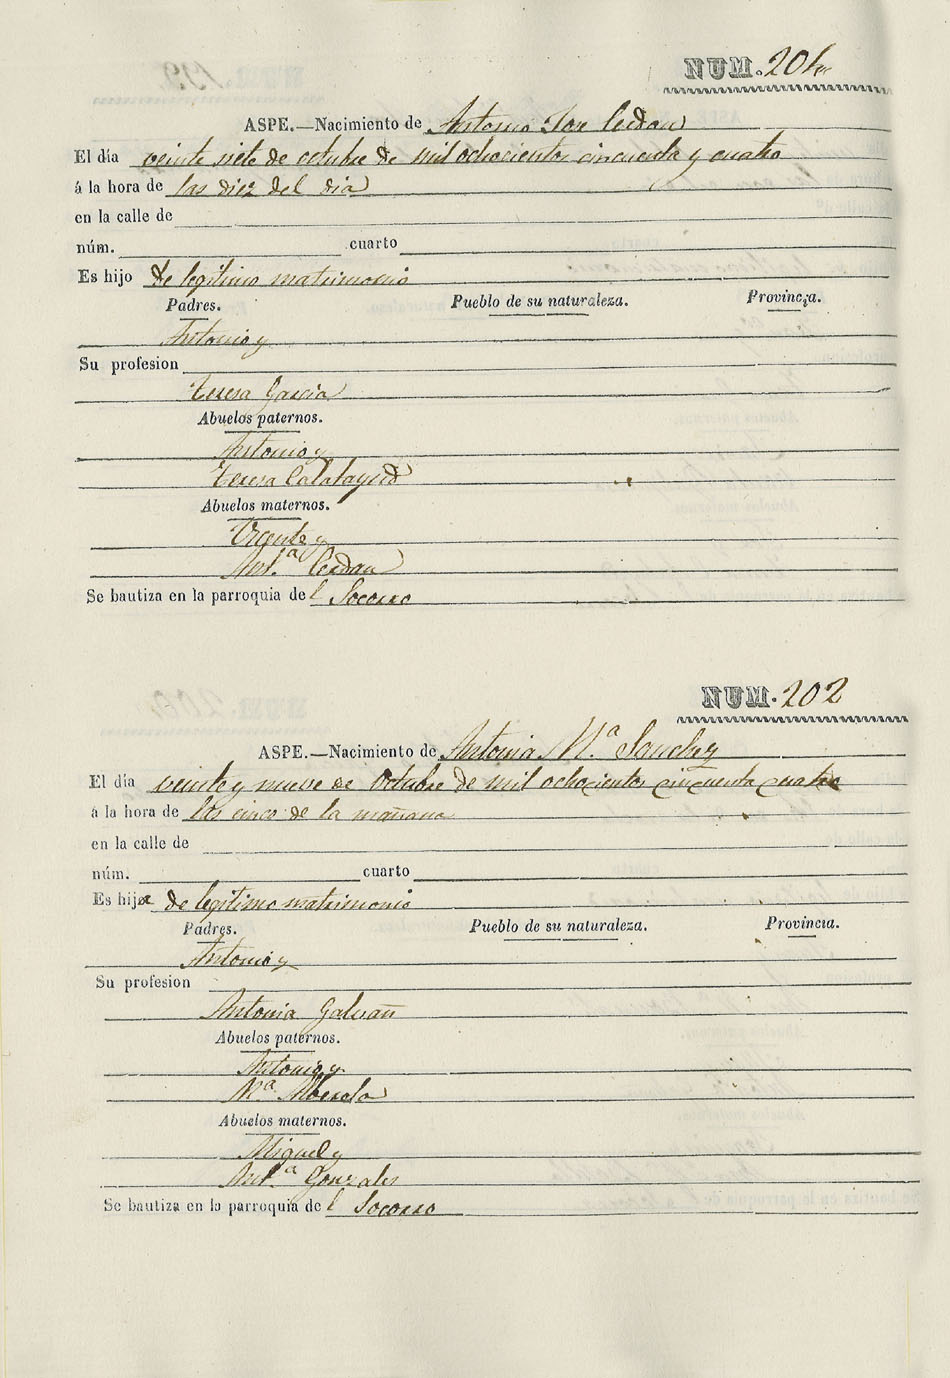 NUM. 201
ASPE.—Nacimiento de Antonio Jose Cerdan
El día veinte siete de octubre de mil ochocientos cincuenta y cuatro
á la hora de las diez del dia
en la calle de
núm. cuarto
Es hijo de legitimo matrimonio
Padres. Pueblo de su naturaleza. Provincia.
Antonio y
Su profesion
Teresa Garcia
Abuelos paternos.
Antonio y
Teresa Calatayud
Abuelos maternos.
Vicente y
Ant.ª Cerdan
Se bautiza en la parroquia del Socorro
NUM. 202
ASPE.—Nacimiento de Antonia Mª Sanchez
El día veinte y nueve de Octubre de mil ochocientos cincuenta cuatro
á la hora de las cinco de la mañana
en la calle de
núm. cuarto
Es hija de legitimo matrimonio
Padres. Pueblo de su naturaleza. Provincia.
Antonio y
Su profesion
Antonia Galvañ
Abuelos paternos.
Antonio y
Mª Alberola
Abuelos maternos.
Miguel y
Ant.ª Gonzales
Se bautiza en la parroquia del Socorro